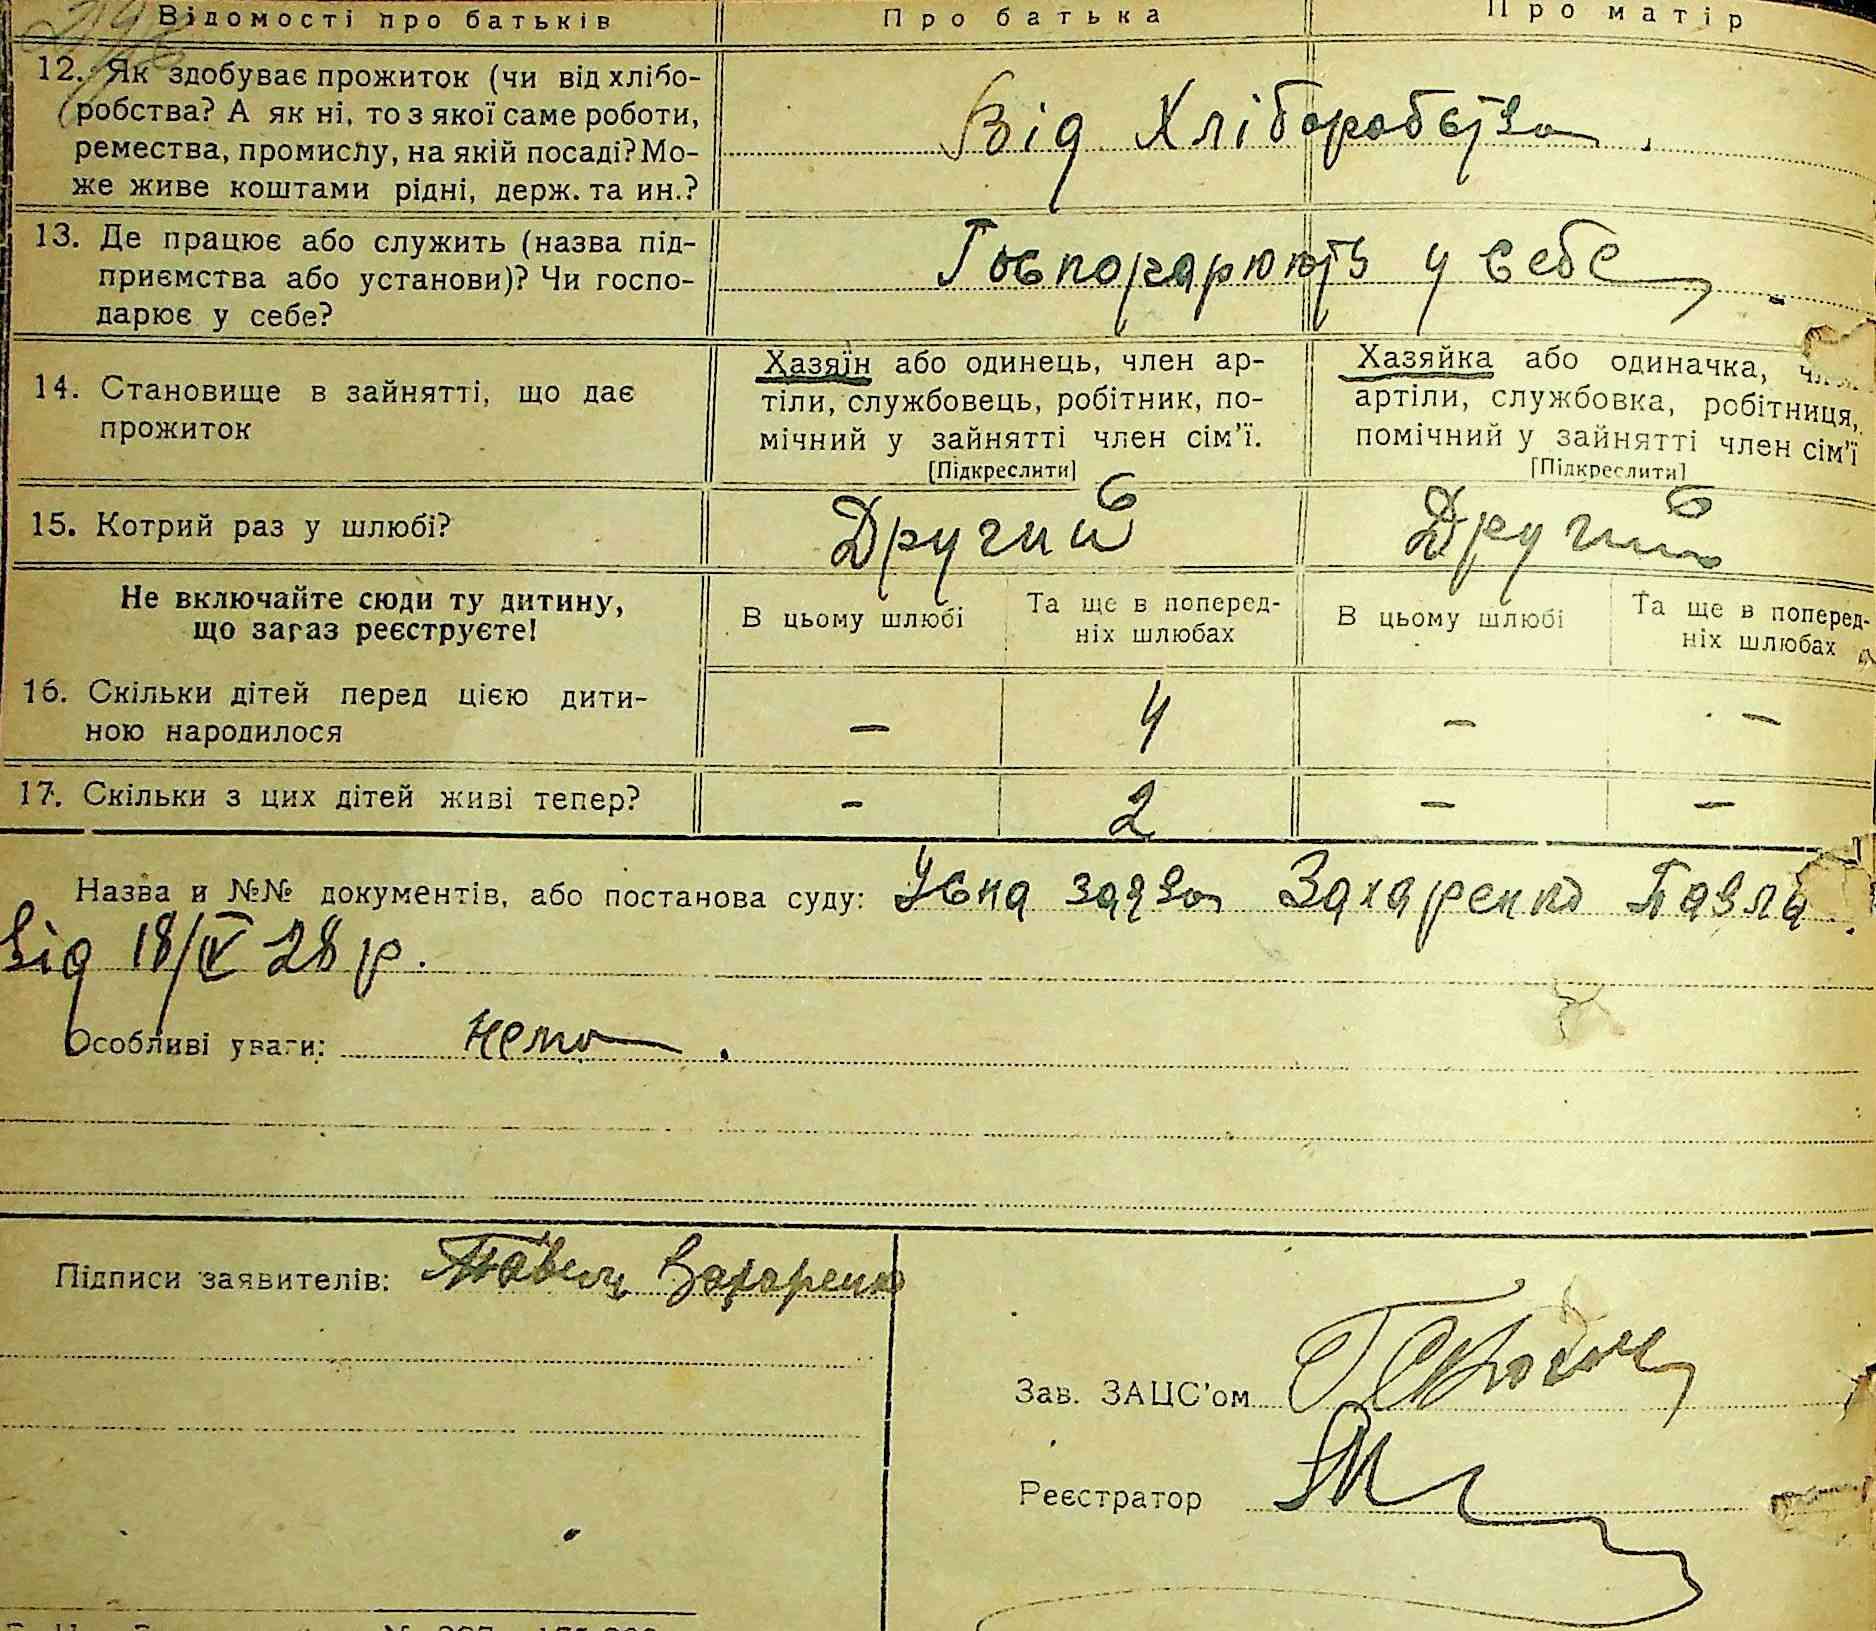 Відомості про батьків Про батька Про матір
12. Як здобуває прожиток (чи від хлібо-
робства? А як ні, то з якої саме роботи,
ремества, промислу, на якій посаді? Мо-
же живе коштами рідні, держ. та ин.?
Від Хліборобства.
13. Де працює або служить (назва під-
приємства або установи)? Чи госпо-
дарює у себе?
Господарюють у себе
14. Становище в зайнятті, що дає
прожиток
Хазяїн або одинець, член ар-
тіли, службовець, робітник, по-
мічний у зайнятті член сім'ї.
[Підкреслити]
Хазяйка або одиначка, член
артіли, службовка, робітниця,
помічний у зайнятті член сім'ї
[Підкреслити]
15. Котрий раз у шлюбі? Другий Другий
Не включайте сюди ту дитину,
що зараз реєструєте!
В цьому шлюбі
Та ще в поперед-
ніх шлюбах
В цьому шлюбі
Та ще в поперед-
ніх шлюбах
16. Скільки дітей перед цією дити-
ною народилося
– 4 – –
17. Скільки з цих дітей живі тепер? – 2 – –
Назва и №№ документів, або постанова суду: Усна заява Захаренко Павла
від 18/IV 28 р.
Особливі уваги: нема.
Підписи заявителів: Павел Захаренко
Зав. ЗАЦС'ом
Реєстратор